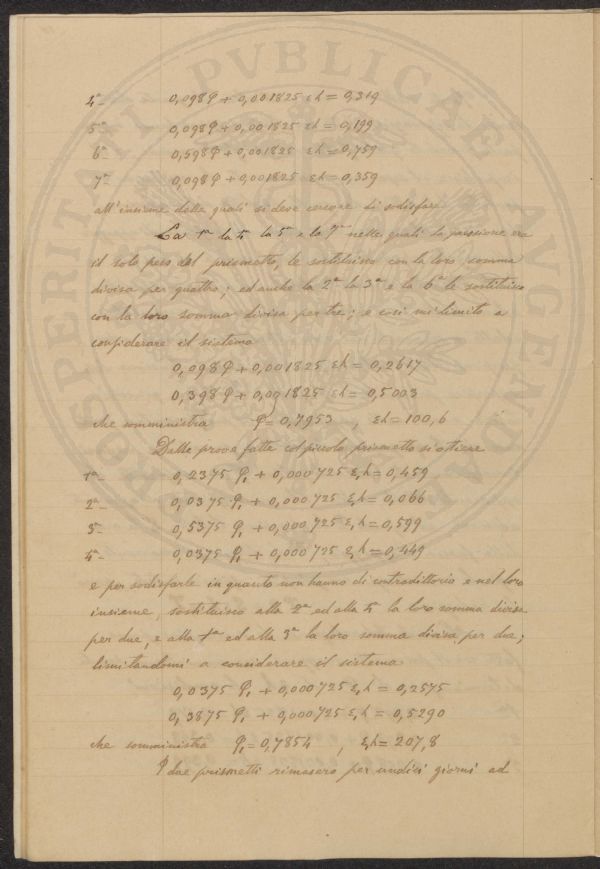 4ª_ 0,098 φ + 0,001825 εh = 0,319
5ª_ 0,098 φ + 0,001825 εh = 0,199
6ª_ 0,598 φ + 0,001825 εh = 0,759
7ª_ 0,098 φ + 0,001825 εh = 0,359
all'insieme delle quali si deve cercare di sodisfare.
La 1ª la 4ª la 5ª e la 7ª nelle quali la pressione era
il solo peso del prismetto, le sostituisco con la loro somma
divisa per quattro; ed anche la 2ª la 3ª e la 6ª le sostituisco
con la loro somma divisa per tre; e così mi limito a
considerare il sistema
0,098 φ + 0,001825 εh = 0,2617
0,398 φ + 0,001825 εh = 0,5003
che somministra φ = 0,7953 , εh = 100,6
Dalle prove fatte col piccolo prismetto si ottiene
1ª_ 0,2375 φ, + 0,000725 ε,h = 0,459
2ª_ 0,0375 φ, + 0,000725 ε,h = 0,066
3ª_ 0,5375 φ, + 0,000725 ε,h = 0,599
4ª_ 0,0375 φ, + 0,000725 ε,h = 0,449
e per sodisfarle in quanto non hanno di contradittorio e nel loro
insieme, sostituisco alla 2ª ed alla 4ª la loro somma divisa
per due, e alla 1ª ed alla 3ª la loro somma divisa per due;
limitandomi a considerare il sistema
0,0375 φ, + 0,000725 ε,h = 0,2575
0,3875 φ, + 0,000725 ε,h = 0,5290
che somministra φ, = 0,7854 , ε,h = 207,8
I due prismetti rimasero per undici giorni ad
PROSPERITATI PVBLICAE AVGENDAE